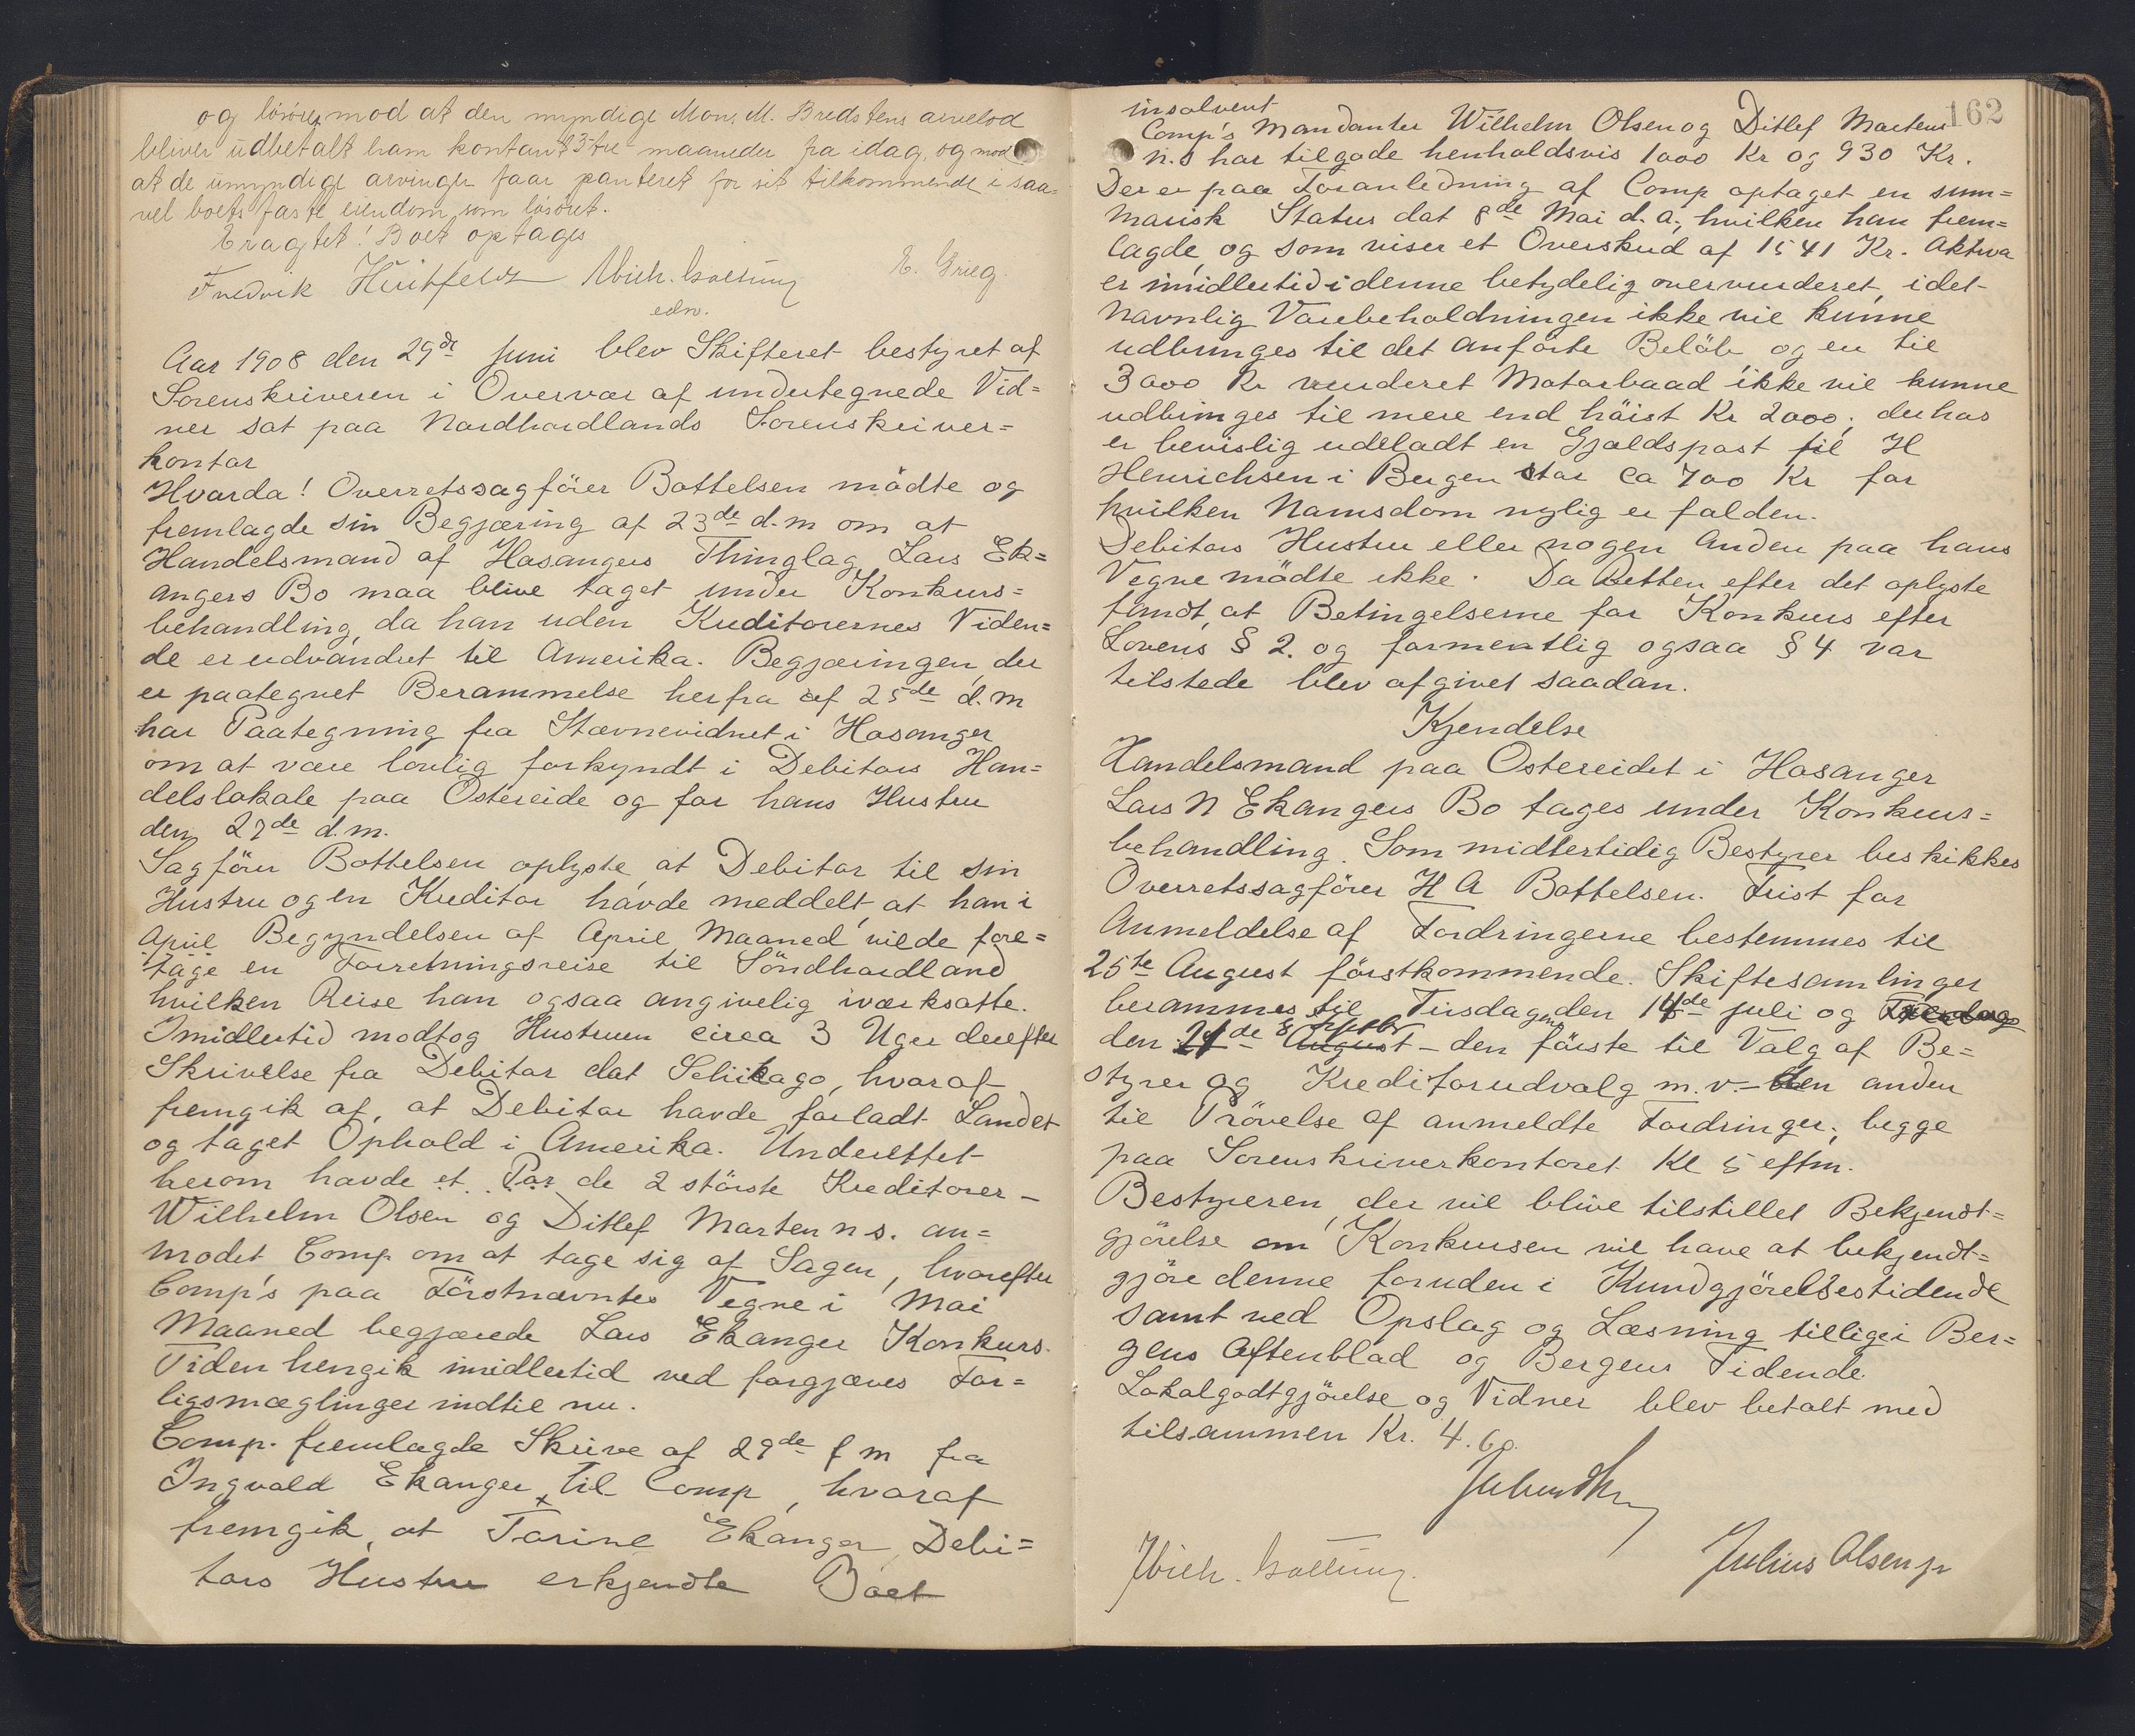 og lösöret mod at den myndige Mons. M. Bredstens arvelod
bliver udbetalt ham kontant 3-tre maaneder fra idag, og mod
at de umyndige arvinger faar panteret for sit tilkommende i saa=
vel boets faste eiendom som lösöret.
Eragtet! Boet optages
Fredrik Huitfeldt Wich. E. Grieg.
edv.
Aar 1908 den 29de Juni blev Skifteret bestyret af
Sorenskriveren i Overvær af undertegnede Vid=
ner sat paa Nordhordlands Sorenskriver=
kontor
Hvorda! Overretssagförer Bottelsen mödte og
fremlagde sin Begjæring af 23de d.m om at
Handelsmand af Hosangers Thinglag Lars Ek=
angers Bo maa blive taget under Konkurs=
behandling, da han uden Kreditorernes Viden=
de er udvandret til Amerika. Begjæringen, der
er paategnet Berammelse herfra af 25de d.m
har Paategning fra Stævnevidnet i Hosanger
om at være lovlig forkyndt i Debitors Han=
delslokale paa Ostereide og for hans Hustru
den 27de d.m.
Sagförer Bottelsen oplyste, at Debitor til sin
Hustru og en Kreditor havde meddelt, at han i
April Begyndelsen af April Maaned vilde fore=
tage en Forretningsreise til Söndhordland
hvilken Reise han ogsaa angivelig iværksatte.
Imidlertid modtog Hustruen circa 3 Uger derefter
Skrivelse fra Debitor dat Schikago, hvoraf
fremgik af, at Debitor havde forladt Landet
og taget Ophold i Amerika. Underettet
herom havde et Par de 2 störste Kreditorer -
Wilhelm Olsen og Ditlef Martenns. an=
modet Comp. om at tage sig af Sagen, hvorefter
Comp's paa Förstnævntes Vegne i Mai
Maaned begjærede Lars Ekanger Konkurs.
Tiden hengik imidlertid ved forgjæves For=
ligsmæglinger indtil nu.
Comp. fremlagde Skrive af 29de f m fra
Ingvald Ekanger til Comp, hvoraf
fremgik, at Torine Ekanger, Debi=
tors Hustru erkjendte Boet
162
insolvent
Comp's Mandanter Wilhelm Olsen og Ditlef Marten
n.s har tilgode henholdsvis 1000 Kr og 930 Kr.
Der er paa Foranledning af Comp optaget en sum=
marisk Status dat 8de Mai d.a., hvilken han frem=
lagde, og som viser et Overskud af 1541 Kr. Aktiva
er imidlertid i denne betydelig overvurderet, idet
navnlig Varebeholdningen ikke vil kunne
udbringes til det anförte Belöb og en til
3000 Kr vurderet Motorbaad ikke vil kunne
udbringes til mere end höist Kr 2000; derhos
er bevislig udeladt en Gjældspost til H
Henrichsen i Bergen stor ca 700 Kr for
hvilken Namsdom nylig er falden.
Debitors Hustru eller nogen Anden paa hans
Vegne mödte ikke. Da Retten efter det oplyste
fandt, at Betingelserne for Konkurs efter
Lovens § 2. og formentlig ogsaa § 4 var
tilstede blev afgivet saadan.
Kjendelse
Handelsmand paa Ostereidet i Hosanger
Lars N Ekangers Bo tages under Konkurs=
behandling. Som midlertidig Bestyrer beskikkes
Overretssagförer H A Bottelsen. Frist for
Anmeldelse af Fordringerne bestemmes til
25te August förstkommende. Skiftesamlinger
berammes til Tirsdag den 14de Juli og
den de August - den förste til Valg af Be=
styrer og Kreditorudvalg m.v. - den anden
til Prövelse af anmeldte Fordringer, begge
paa Sorenskriverkontoret Kl 5 eftm.
Bestyreren, der vil blive tilstillet Bekjendt=
gjörelse om Konkursen vil have at bekjendt=
gjöre denne foruden i Kundgjörelsestidende
samt ved Opslag og Læsning tillige i Ber=
gens Aftenblad og Bergens Tidende.
Lokalgodtgjörelse og Vidner blev betalt med
tilsammen Kr. 4.60.
Wich. Julius Olsen jr